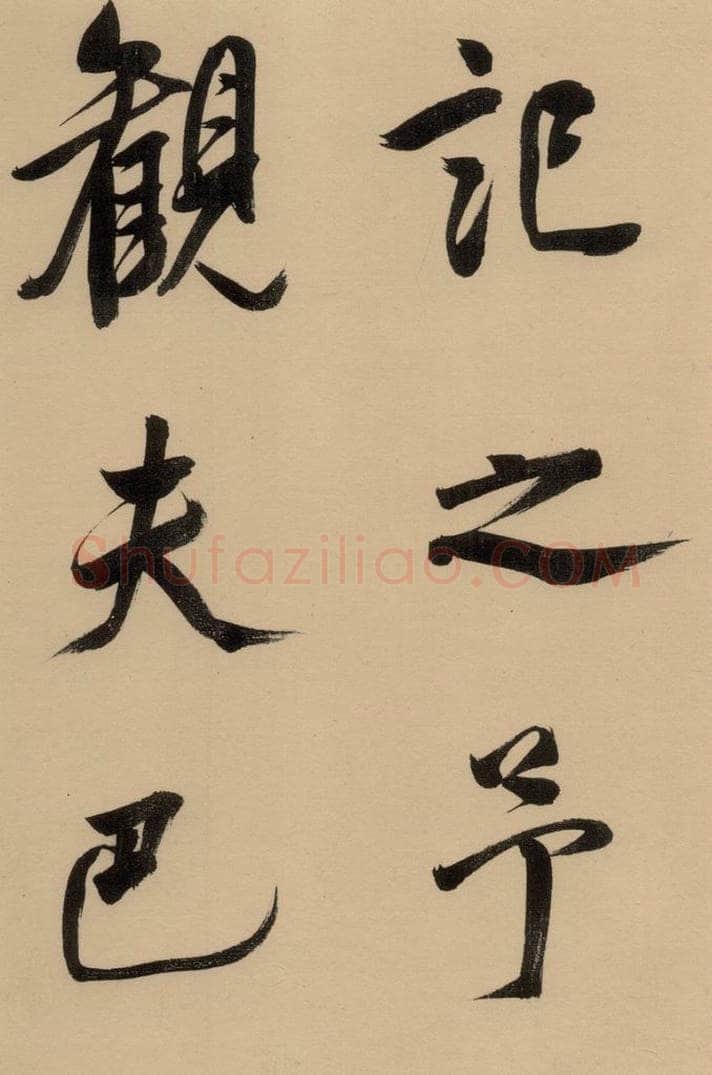 記之予
観夫巴
Shufaziliao.COM